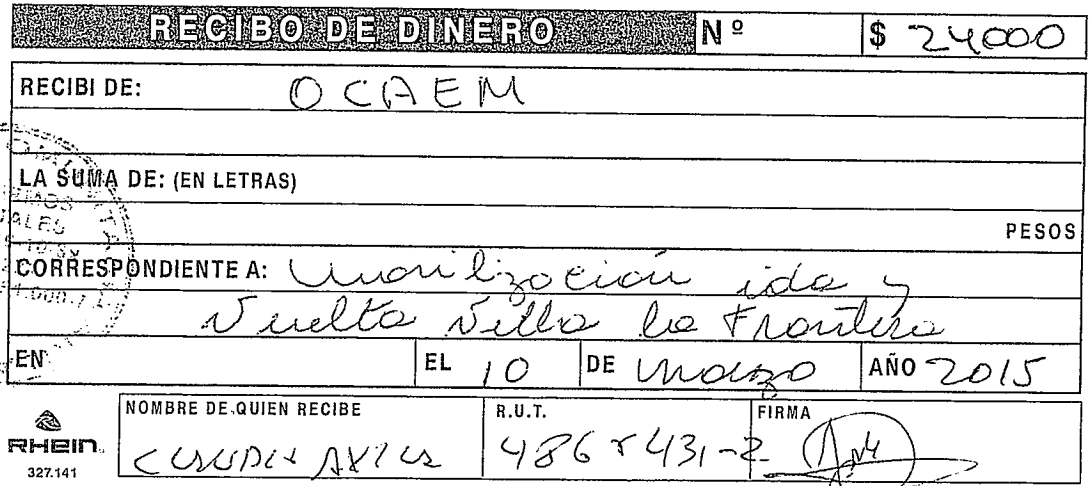 RECIBO DE DINERO Nº $ 24000
RECIBI DE: OCAEM
LA SUMA DE: (EN LETRAS)
PESOS
CORRESPONDIENTE A: movilización ida y
Vuelta Villa la Frontera
EN EL 10 DE marzo AÑO 2015
NOMBRE DE QUIEN RECIBE R.U.T. FIRMA
RHEIN
327.141